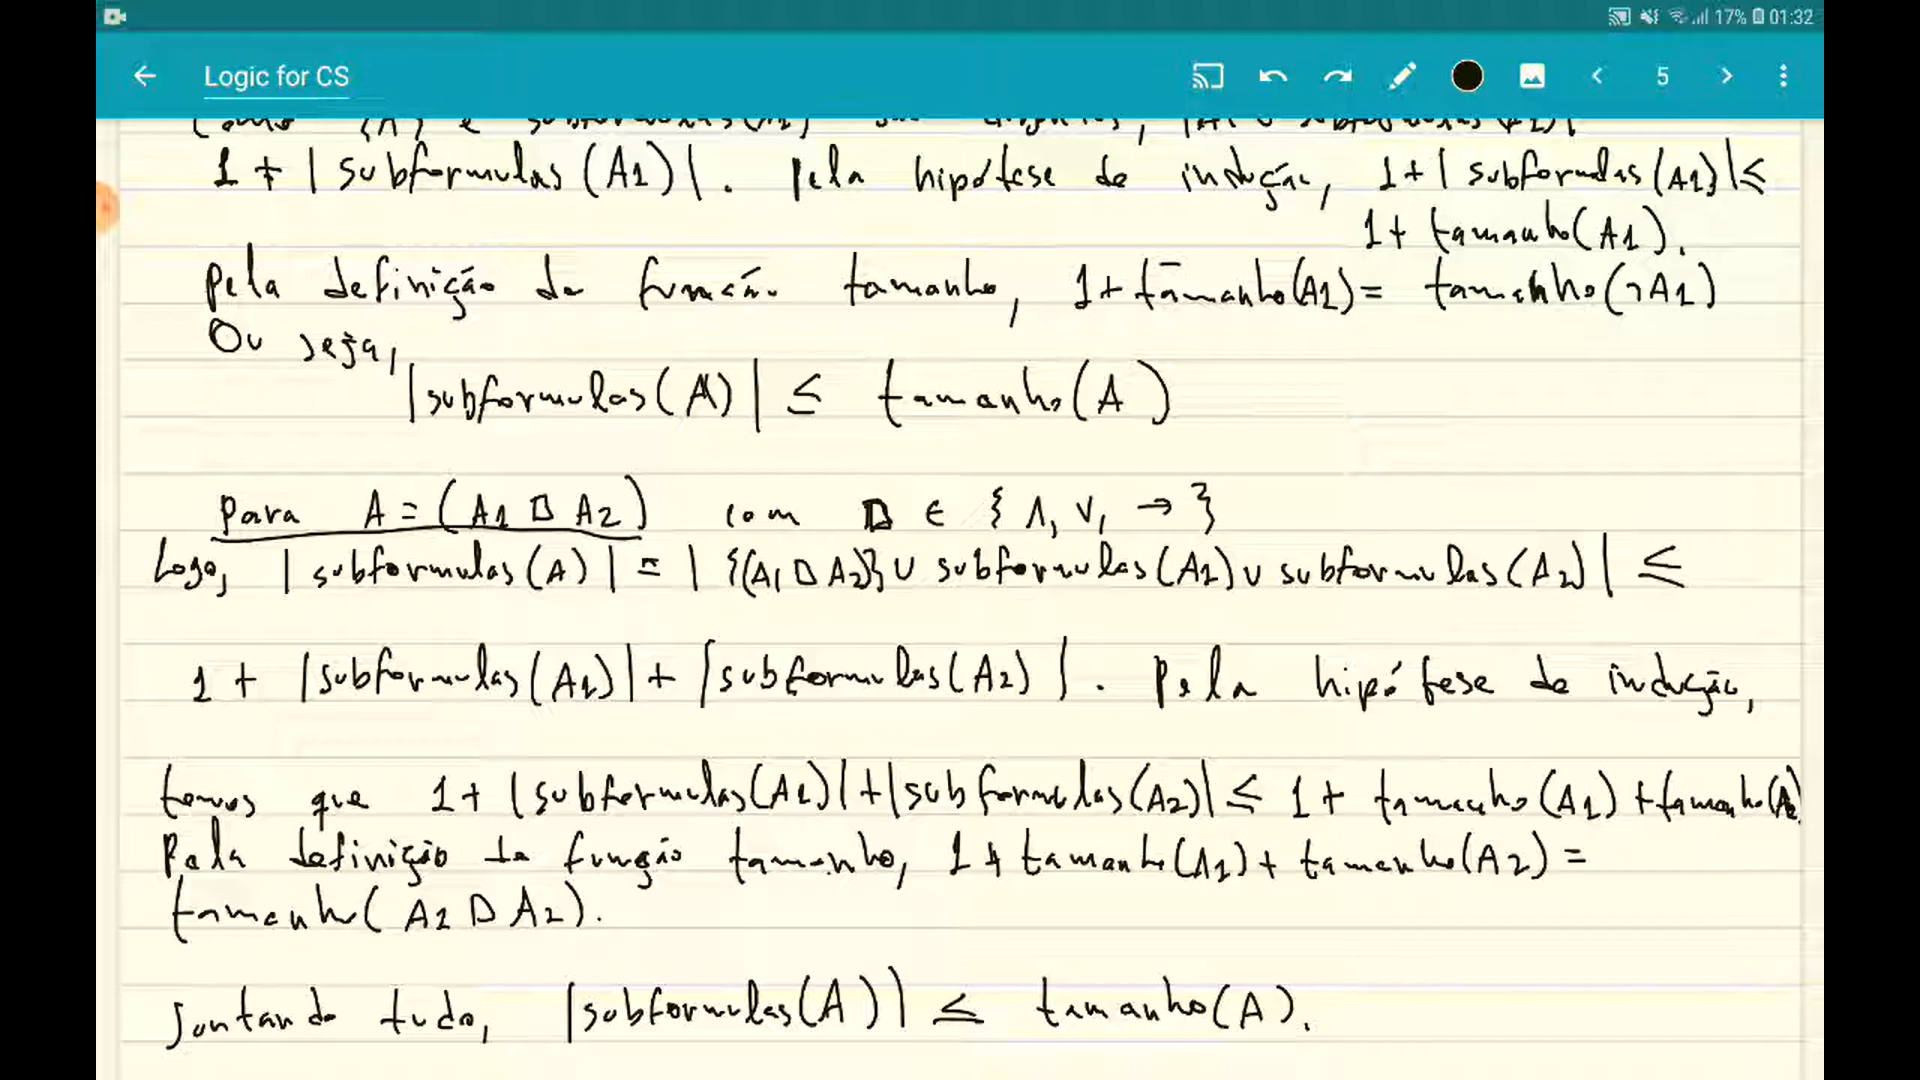 17% 01:32
Logic for CS
5
1 + | subformulas (A1) |. Pela hipótese de indução, 1 + | subformulas (A1) | ≤
1 + tamanho (A1).
Pela definição da função tamanho, 1 + tamanho (A1) = tamanho (¬A1)
Ou seja,
| subformulas (A) | ≤ tamanho (A)
Para A = (A1 □ A2) com □ ∈ { ∧, ∨, → }
Logo, | subformulas (A) | = | {(A1 □ A2)} ∪ subformulas (A1) ∪ subformulas (A2) | ≤
1 + | subformulas (A1) | + | subformulas (A2) |. Pela hipótese de indução,
temos que 1 + | subformulas (A1) | + | subformulas (A2) | ≤ 1 + tamanho (A1) + tamanho (A2).
Pela definição da função tamanho, 1 + tamanho (A1) + tamanho (A2) =
tamanho ( A1 □ A2).
Juntando tudo, | subformulas (A) | ≤ tamanho (A).